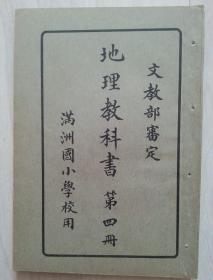 文教部審定
地理教科書 第四冊
滿洲國小學校用